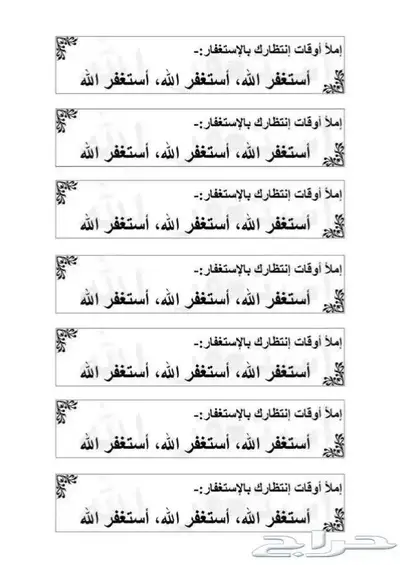 إملأ أوقات إنتظارك بالإستغفار:-
أستغفر الله، أستغفر الله، أستغفر الله
إملأ أوقات إنتظارك بالإستغفار:-
أستغفر الله، أستغفر الله، أستغفر الله
إملأ أوقات إنتظارك بالإستغفار:-
أستغفر الله، أستغفر الله، أستغفر الله
إملأ أوقات إنتظارك بالإستغفار:-
أستغفر الله، أستغفر الله، أستغفر الله
إملأ أوقات إنتظارك بالإستغفار:-
أستغفر الله، أستغفر الله، أستغفر الله
إملأ أوقات إنتظارك بالإستغفار:-
أستغفر الله، أستغفر الله، أستغفر الله
إملأ أوقات إنتظارك بالإستغفار:-
أستغفر الله، أستغفر الله، أستغفر الله
حراج